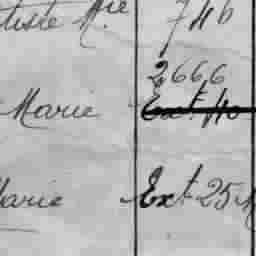 tiste M.ie 746
2666
Marie Ext. 40
Marie Ext 25 M